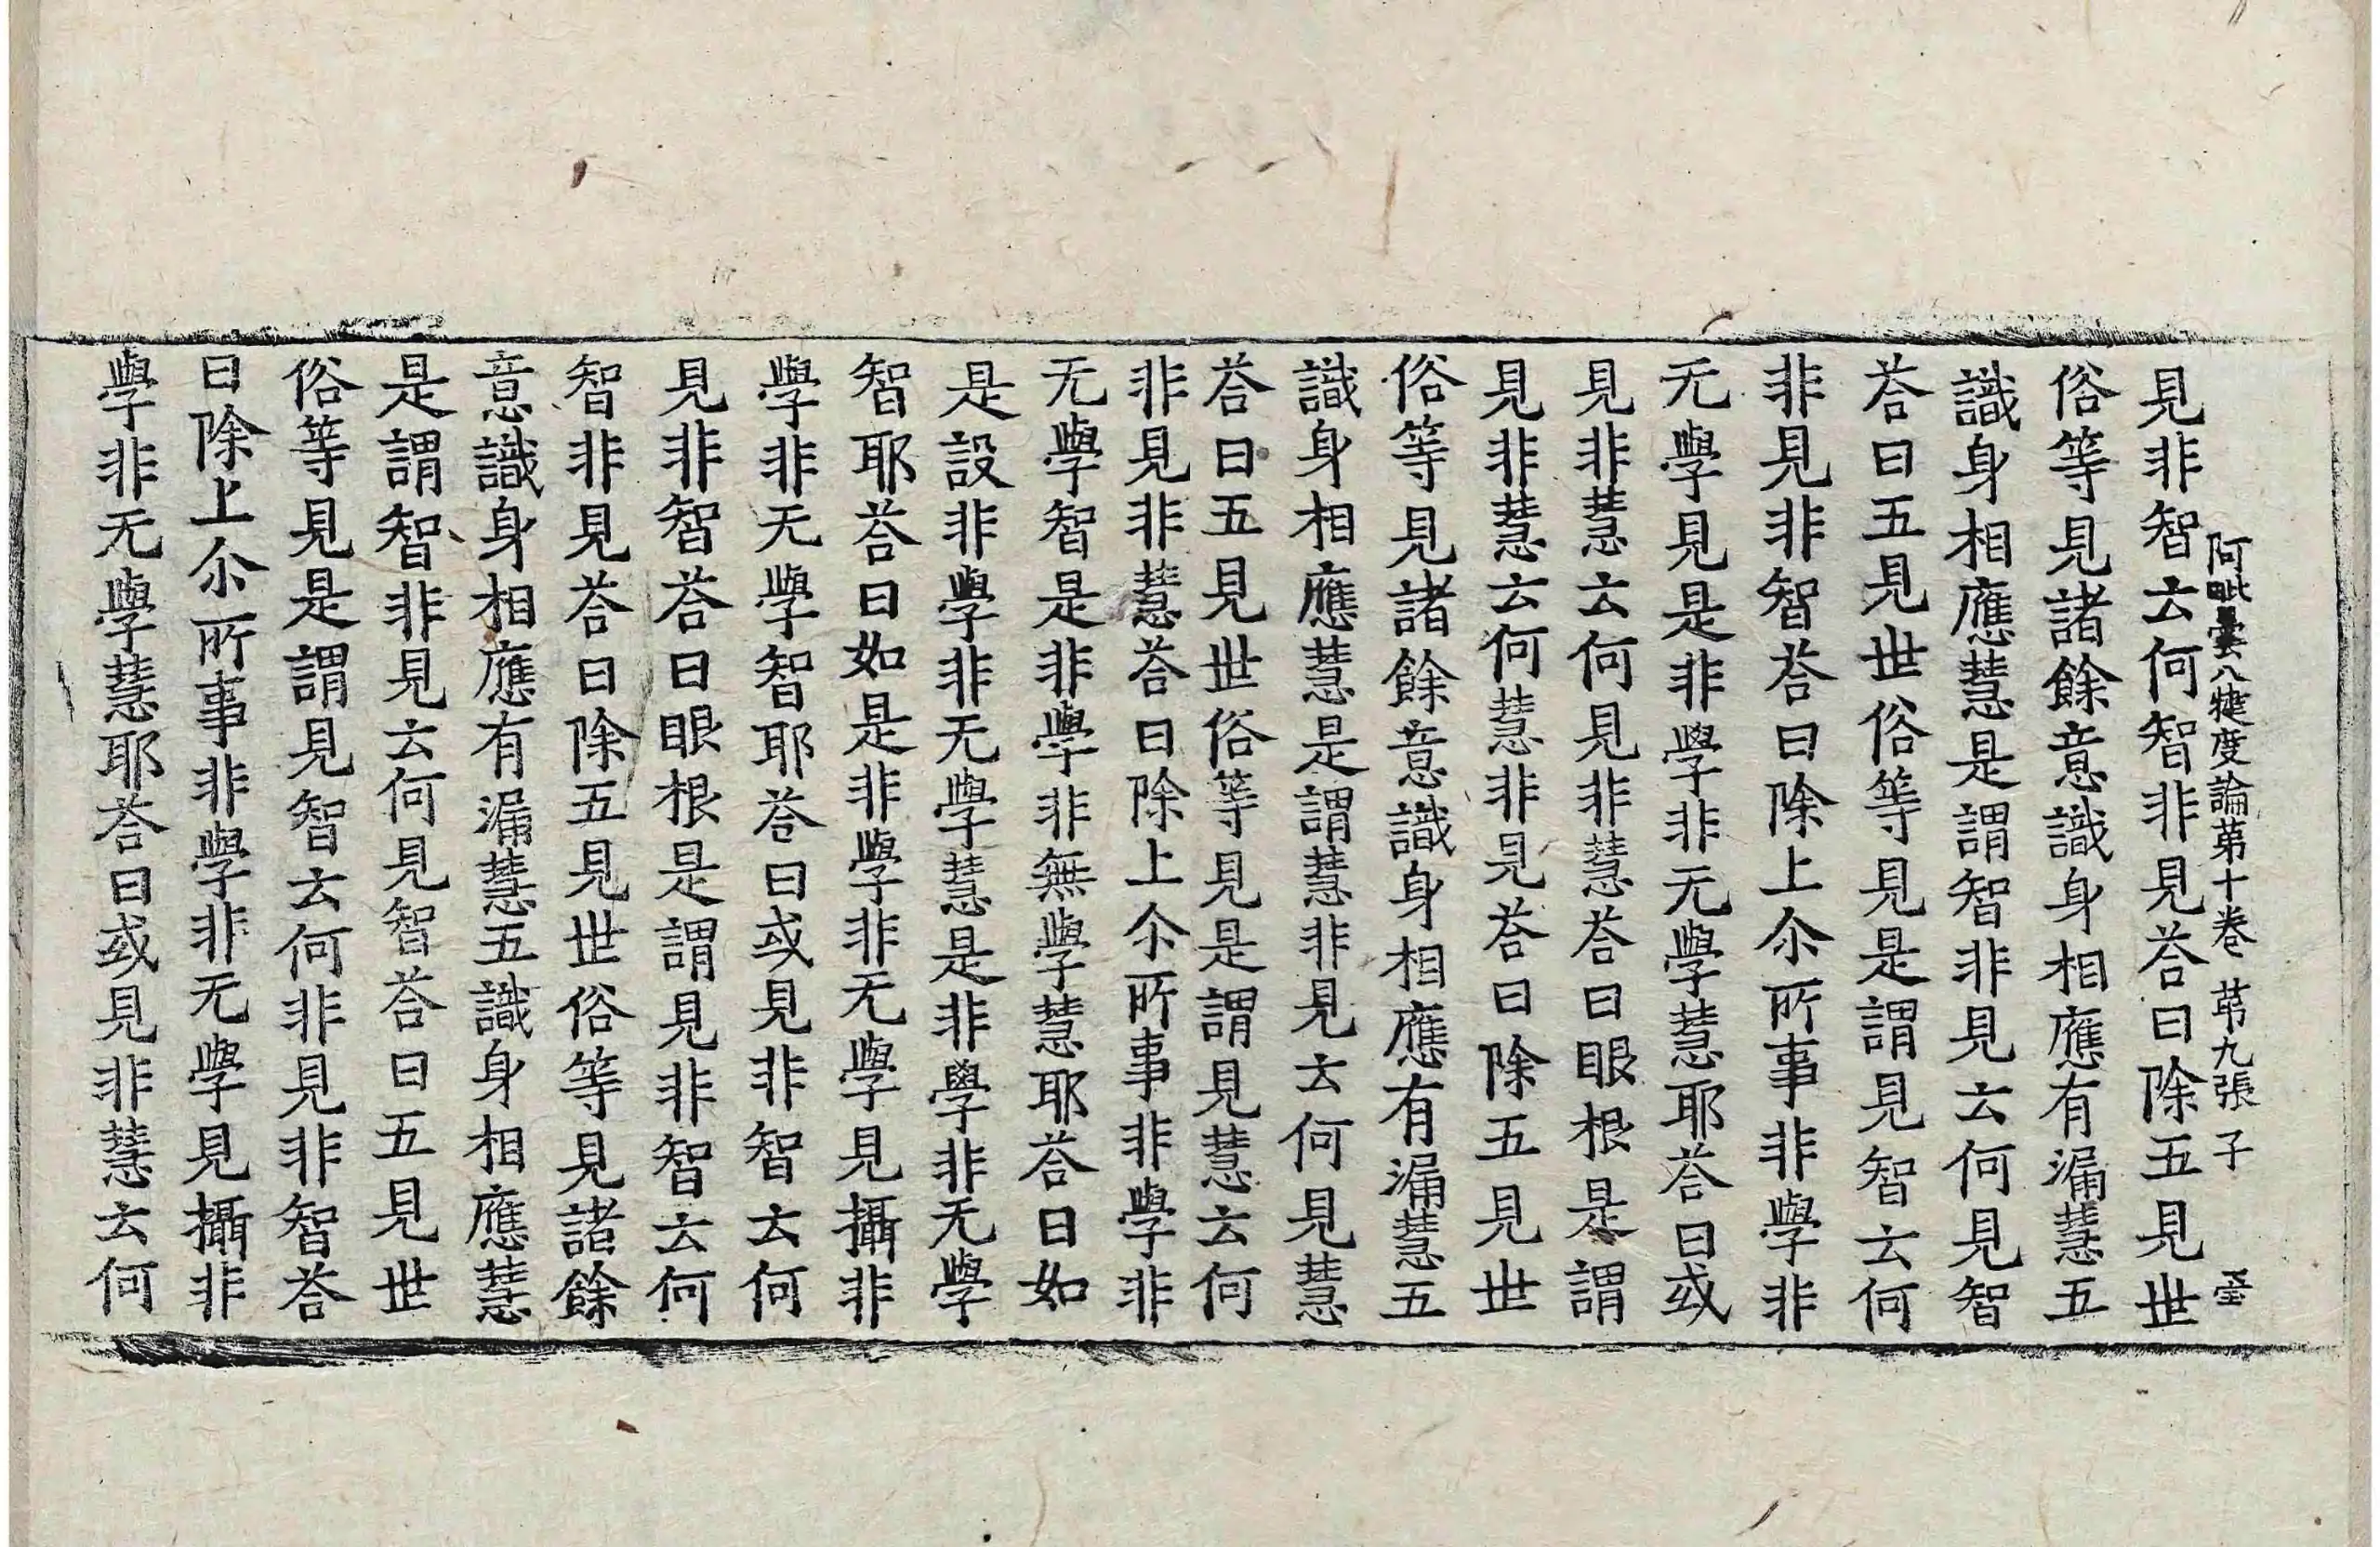 阿毗曇八犍度論苐十卷 苐九張 子
見非智云何智非見荅曰除五見世
俗等見諸餘意識身相應有漏慧五
識身相應慧是謂智非見云何見智
荅曰五見世俗等見是謂見智云何
非見非智荅曰除上尒所事非學非
无學見是非學非无學慧耶荅曰或
見非慧云何見非慧荅曰眼根是謂
見非慧云何慧非見荅曰除五見世
俗等見諸餘意識身相應有漏慧五
識身相應慧是謂慧非見云何見慧
荅曰五見世俗等見是謂見慧云何
非見非慧荅曰除上尒所事非學非
无學智是非學非無學慧耶荅曰如
是設非學非无學慧是非學非无學
智耶荅曰如是非學非无學見攝非
學非无學智耶荅曰或見非智云何
見非智荅曰眼根是謂見非智云何
智非見荅曰除五見世俗等見諸餘
意識身相應有漏慧五識身相應慧
是謂智非見云何見智荅曰五見世
俗等見是謂見智云何非見非智荅
曰除上尒所事非學非无學見攝非
學非无學慧耶荅曰或見非慧云何